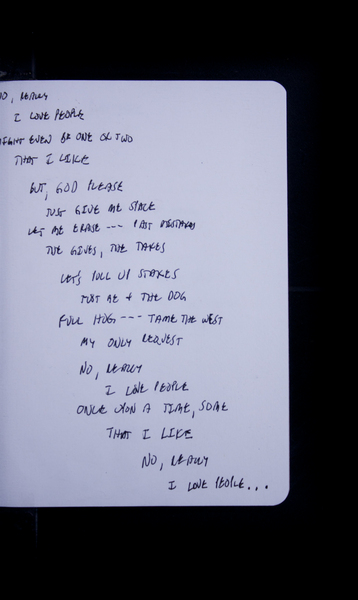 NO, REALLY
I LOVE PEOPLE
MIGHT EVEN BE ONE OR TWO
THAT I LIKE
BUT, GOD PLEASE
JUST GIVE ME SPACE
LET ME ERASE --- PAST MISTAKES
THE GIVES, THE TAKES
LET'S PULL UP STAKES
JUST ME + THE DOG
FULL HOG --- TAME THE WEST
MY ONLY REQUEST
NO, REALLY
I LOVE PEOPLE
ONCE UPON A TIME, SOME
THAT I LIKE
NO, REALLY
I LOVE PEOPLE...